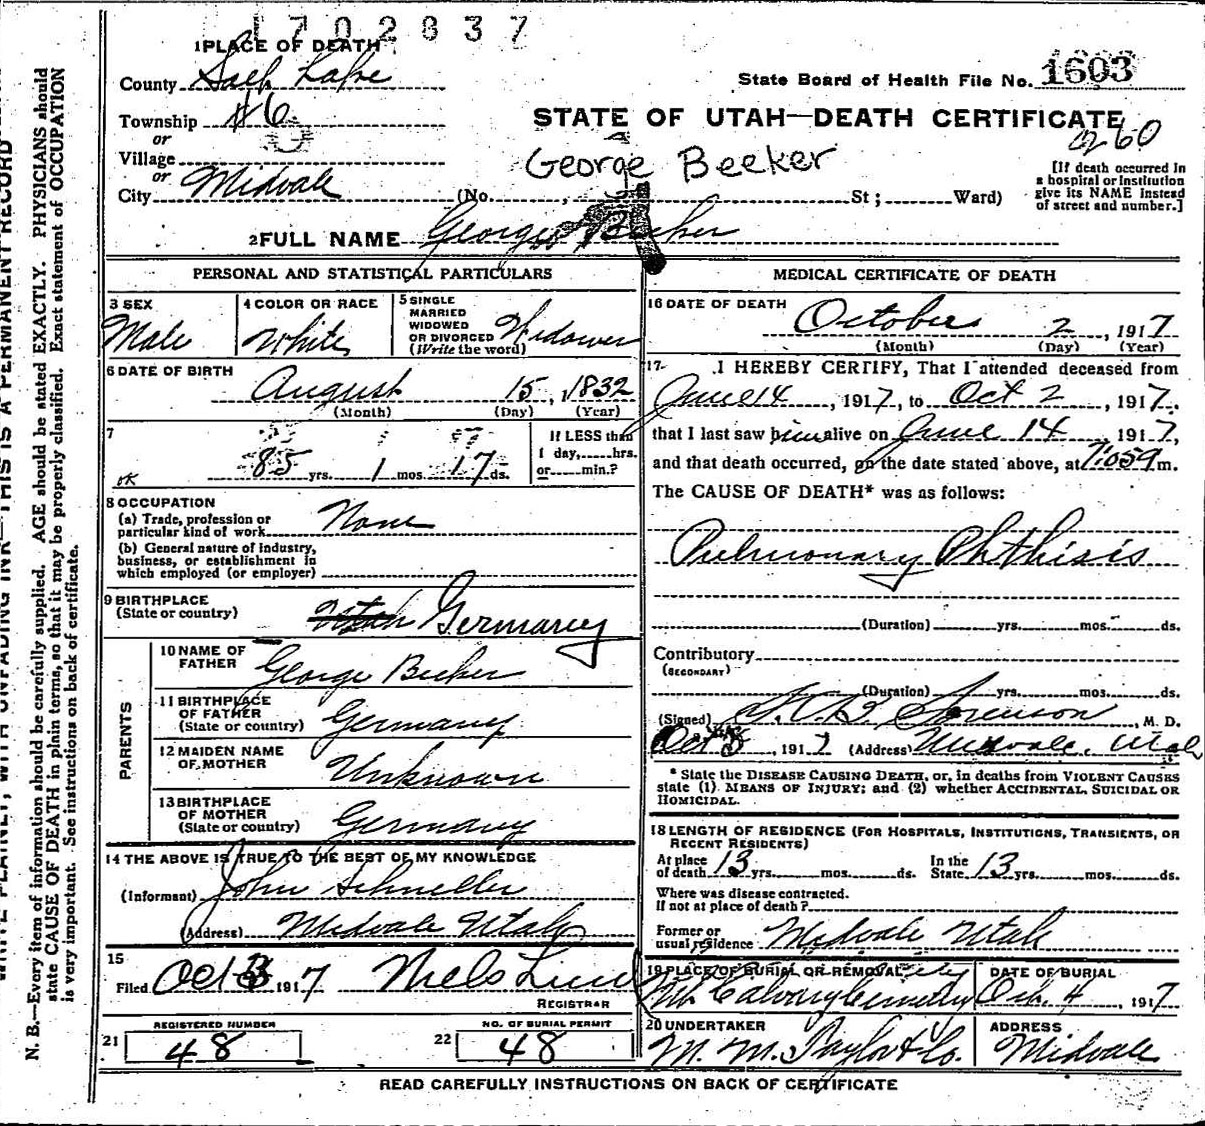 1702837
1 PLACE OF DEATH
County Salt Lake
State Board of Health File No. 1603
Township #6
or
Village
or
City Midvale
STATE OF UTAH—DEATH CERTIFICATE
260
George Becker
(No. , St ; Ward)
[If death occurred in
a hospital or institution
give its NAME instead
of street and number.]
2 FULL NAME George Becker
PERSONAL AND STATISTICAL PARTICULARS
3 SEX
Male
4 COLOR OR RACE
White
5 SINGLE
MARRIED
WIDOWED
OR DIVORCED
(Write the word)
Widower
6 DATE OF BIRTH
August 15, 1832
(Month) (Day) (Year)
7
85 yrs. 1 mos. 17 ds.
If LESS than
1 day, hrs.
or min.?
OK
8 OCCUPATION
(a) Trade, profession or
particular kind of work None
(b) General nature of industry,
business, or establishment in
which employed (or employer)
9 BIRTHPLACE
(State or country)
Utah Germany
PARENTS
10 NAME OF
FATHER
George Becker
11 BIRTHPLACE
OF FATHER
(State or country)
Germany
12 MAIDEN NAME
OF MOTHER
Unknown
13 BIRTHPLACE
OF MOTHER
(State or country)
Germany
14 THE ABOVE IS TRUE TO THE BEST OF MY KNOWLEDGE
(Informant) John Schneller
(Address) Midvale Utah
15
Filed Oct 3 1917 Niels Lind
REGISTRAR
21 REGISTERED NUMBER
48
22 NO. OF BURIAL PERMIT
48
MEDICAL CERTIFICATE OF DEATH
16 DATE OF DEATH
October 2, 1917
(Month) (Day) (Year)
17 I HEREBY CERTIFY, That I attended deceased from
June 14, 1917, to Oct 2, 1917,
that I last saw him alive on June 14 1917,
and that death occurred, on the date stated above, at 7:05 m.
The CAUSE OF DEATH* was as follows:
Pulmonary Phthisis
(Duration) yrs. mos. ds.
Contributory
(SECONDARY)
(Duration) yrs. mos. ds.
(Signed) Sorenson, M. D.
Oct 3, 1917 (Address) Midvale, Utah
* State the DISEASE CAUSING DEATH, or, in deaths from VIOLENT CAUSES
state (1) MEANS OF INJURY; and (2) whether ACCIDENTAL, SUICIDAL OR
HOMICIDAL.
18 LENGTH OF RESIDENCE (FOR HOSPITALS, INSTITUTIONS, TRANSIENTS, OR
RECENT RESIDENTS)
At place
of death 13 yrs. mos. ds.
In the
State 13 yrs. mos. ds.
Where was disease contracted,
If not at place of death?
Former or
usual residence Midvale Utah
19 PLACE OF BURIAL OR REMOVAL
Mt Calvary Cemetery City
DATE OF BURIAL
Oct. 4, 1917
20 UNDERTAKER
M. M. Taylor & Co.
ADDRESS
Midvale
READ CAREFULLY INSTRUCTIONS ON BACK OF CERTIFICATE
WRITE PLAINLY, WITH UNFADING INK—THIS IS A PERMANENT RECORD
N. B.—Every item of information should be carefully supplied. AGE should be stated EXACTLY. PHYSICIANS should
state CAUSE OF DEATH in plain terms, so that it may be properly classified. Exact statement of OCCUPATION
is very important. See instructions on back of certificate.